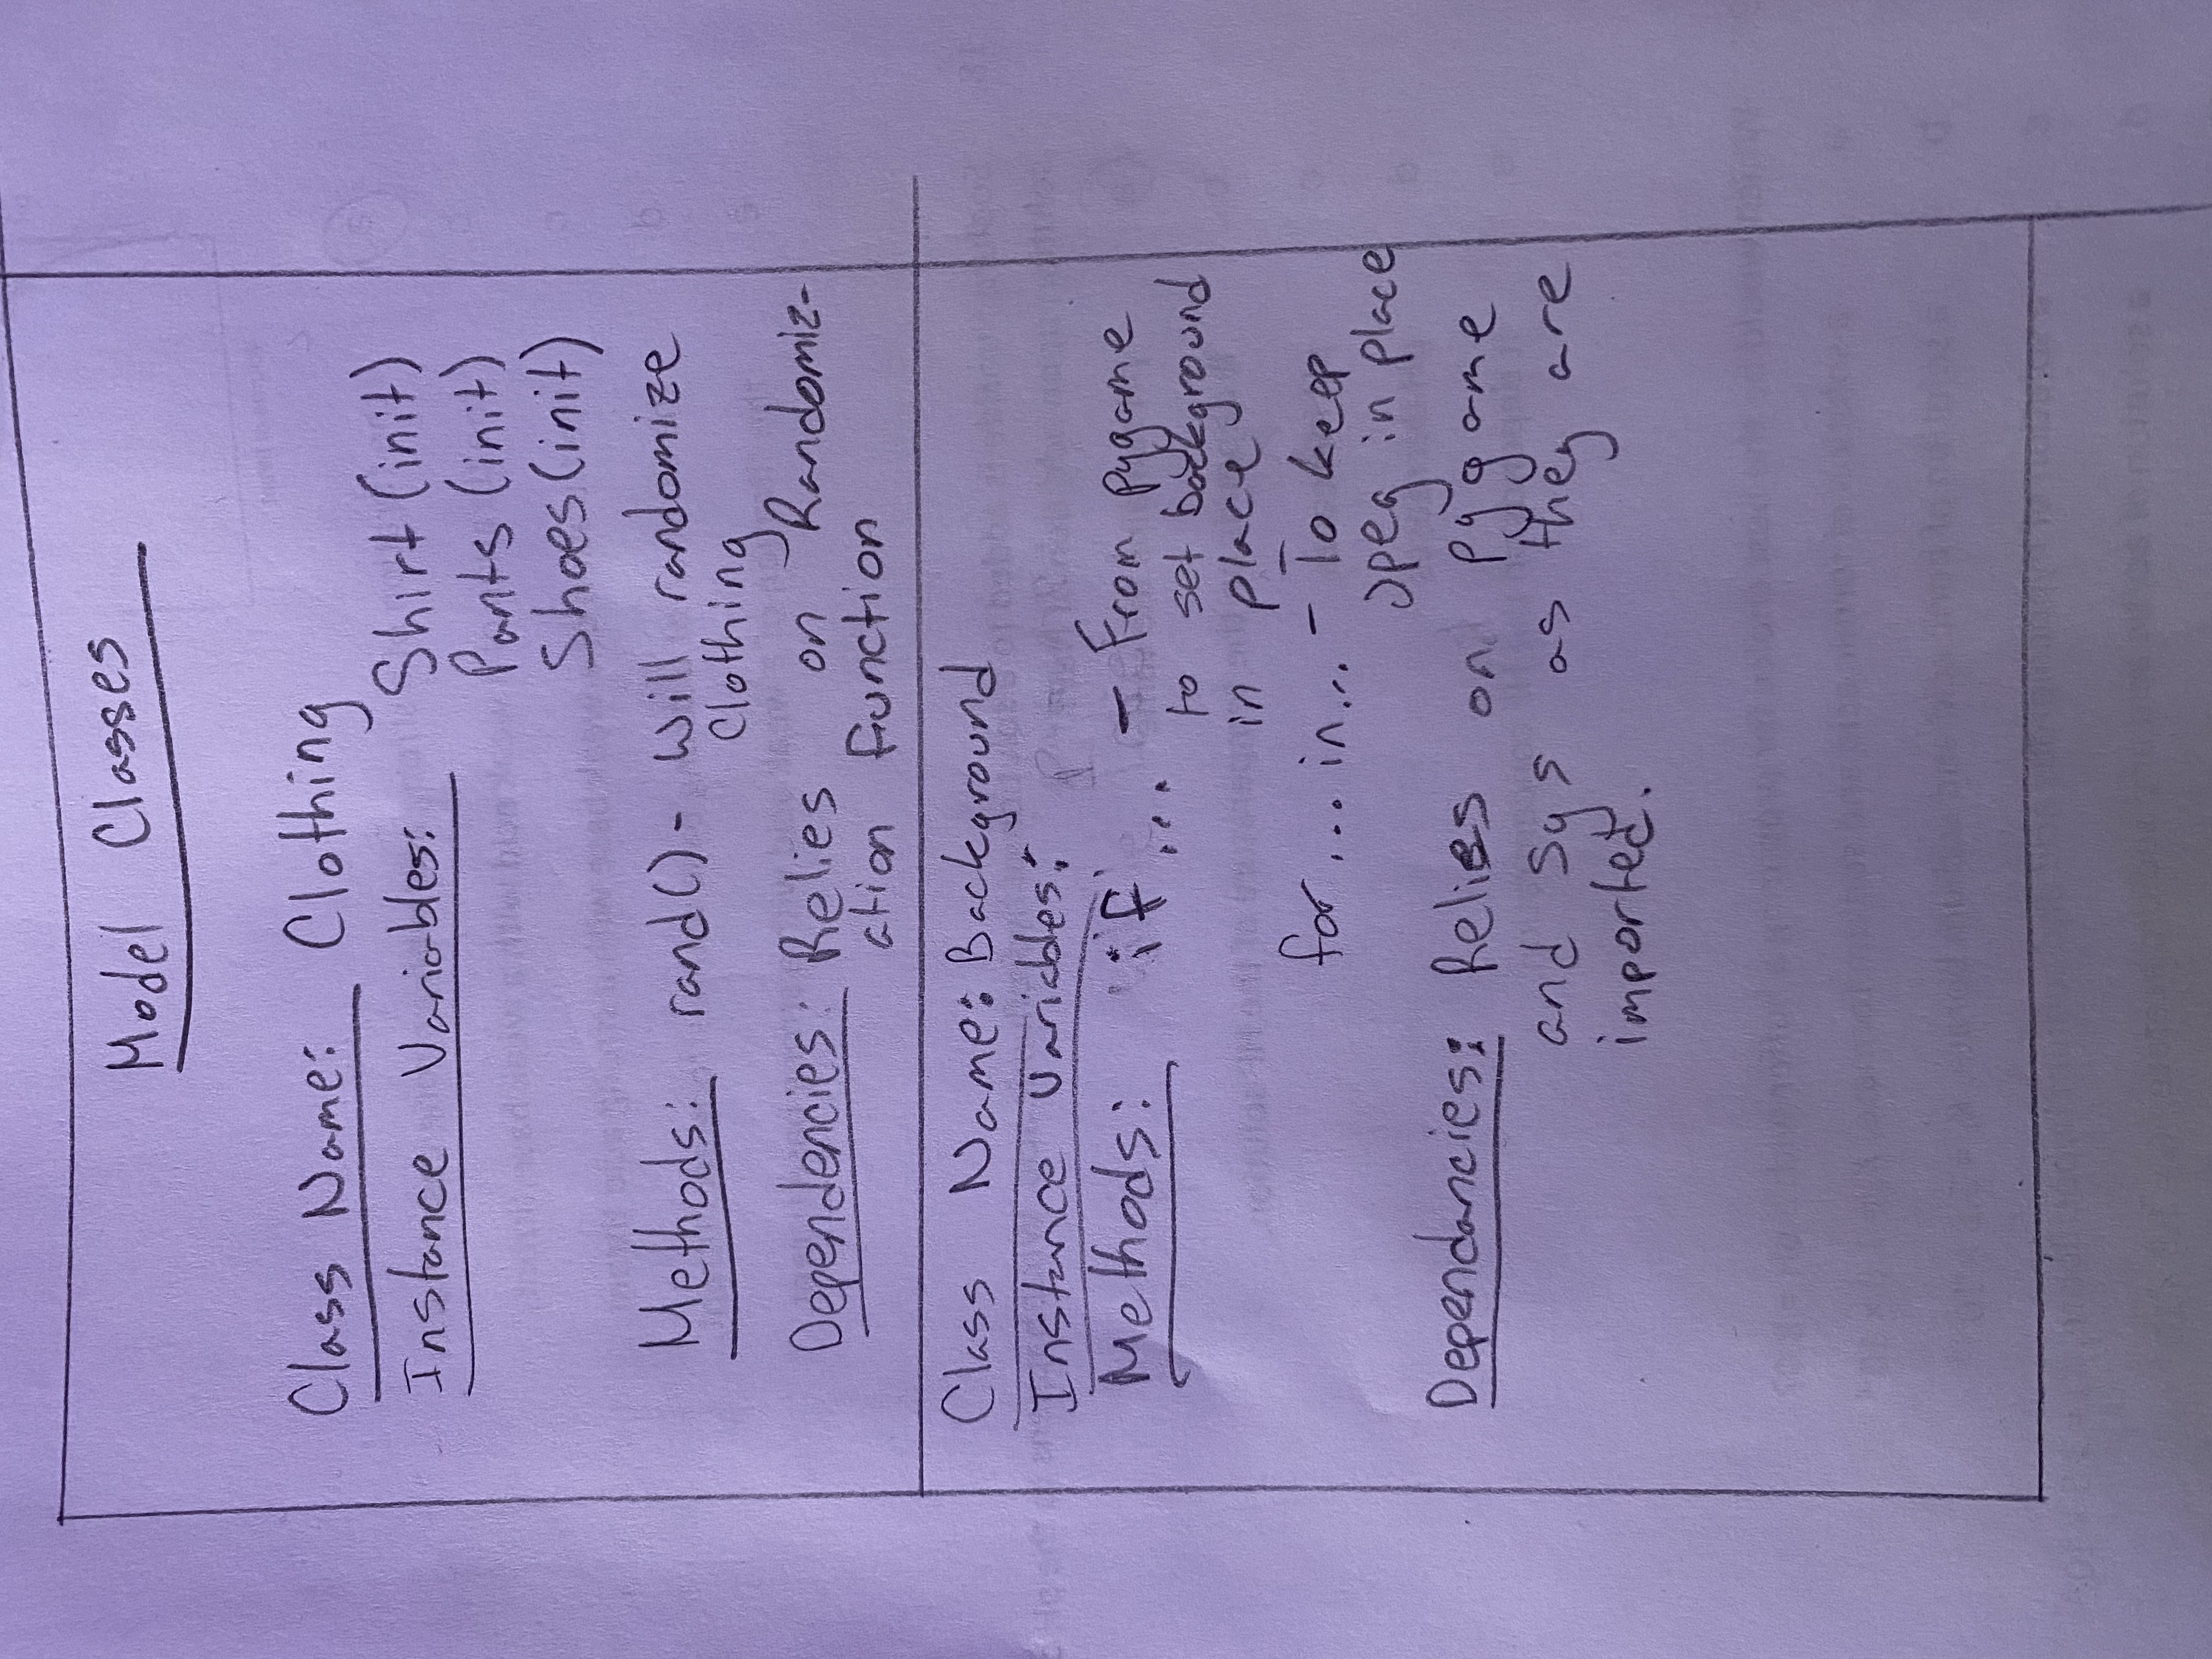 Model Classes
Class Name: Clothing
Instance Variables: Shirt (init)
Pants (init)
Shoes (init)
Methods: rand() - Will randomize
Clothing
Dependencies: Relies on Randomiz-
ation function
Class Name: Background
Instance Variables:
Methods: if ... - From pygame
to set background
in place
for ... in... - To keep
Jpeg in place
Dependancies: Relies on pygame
and sys as they are
imported.